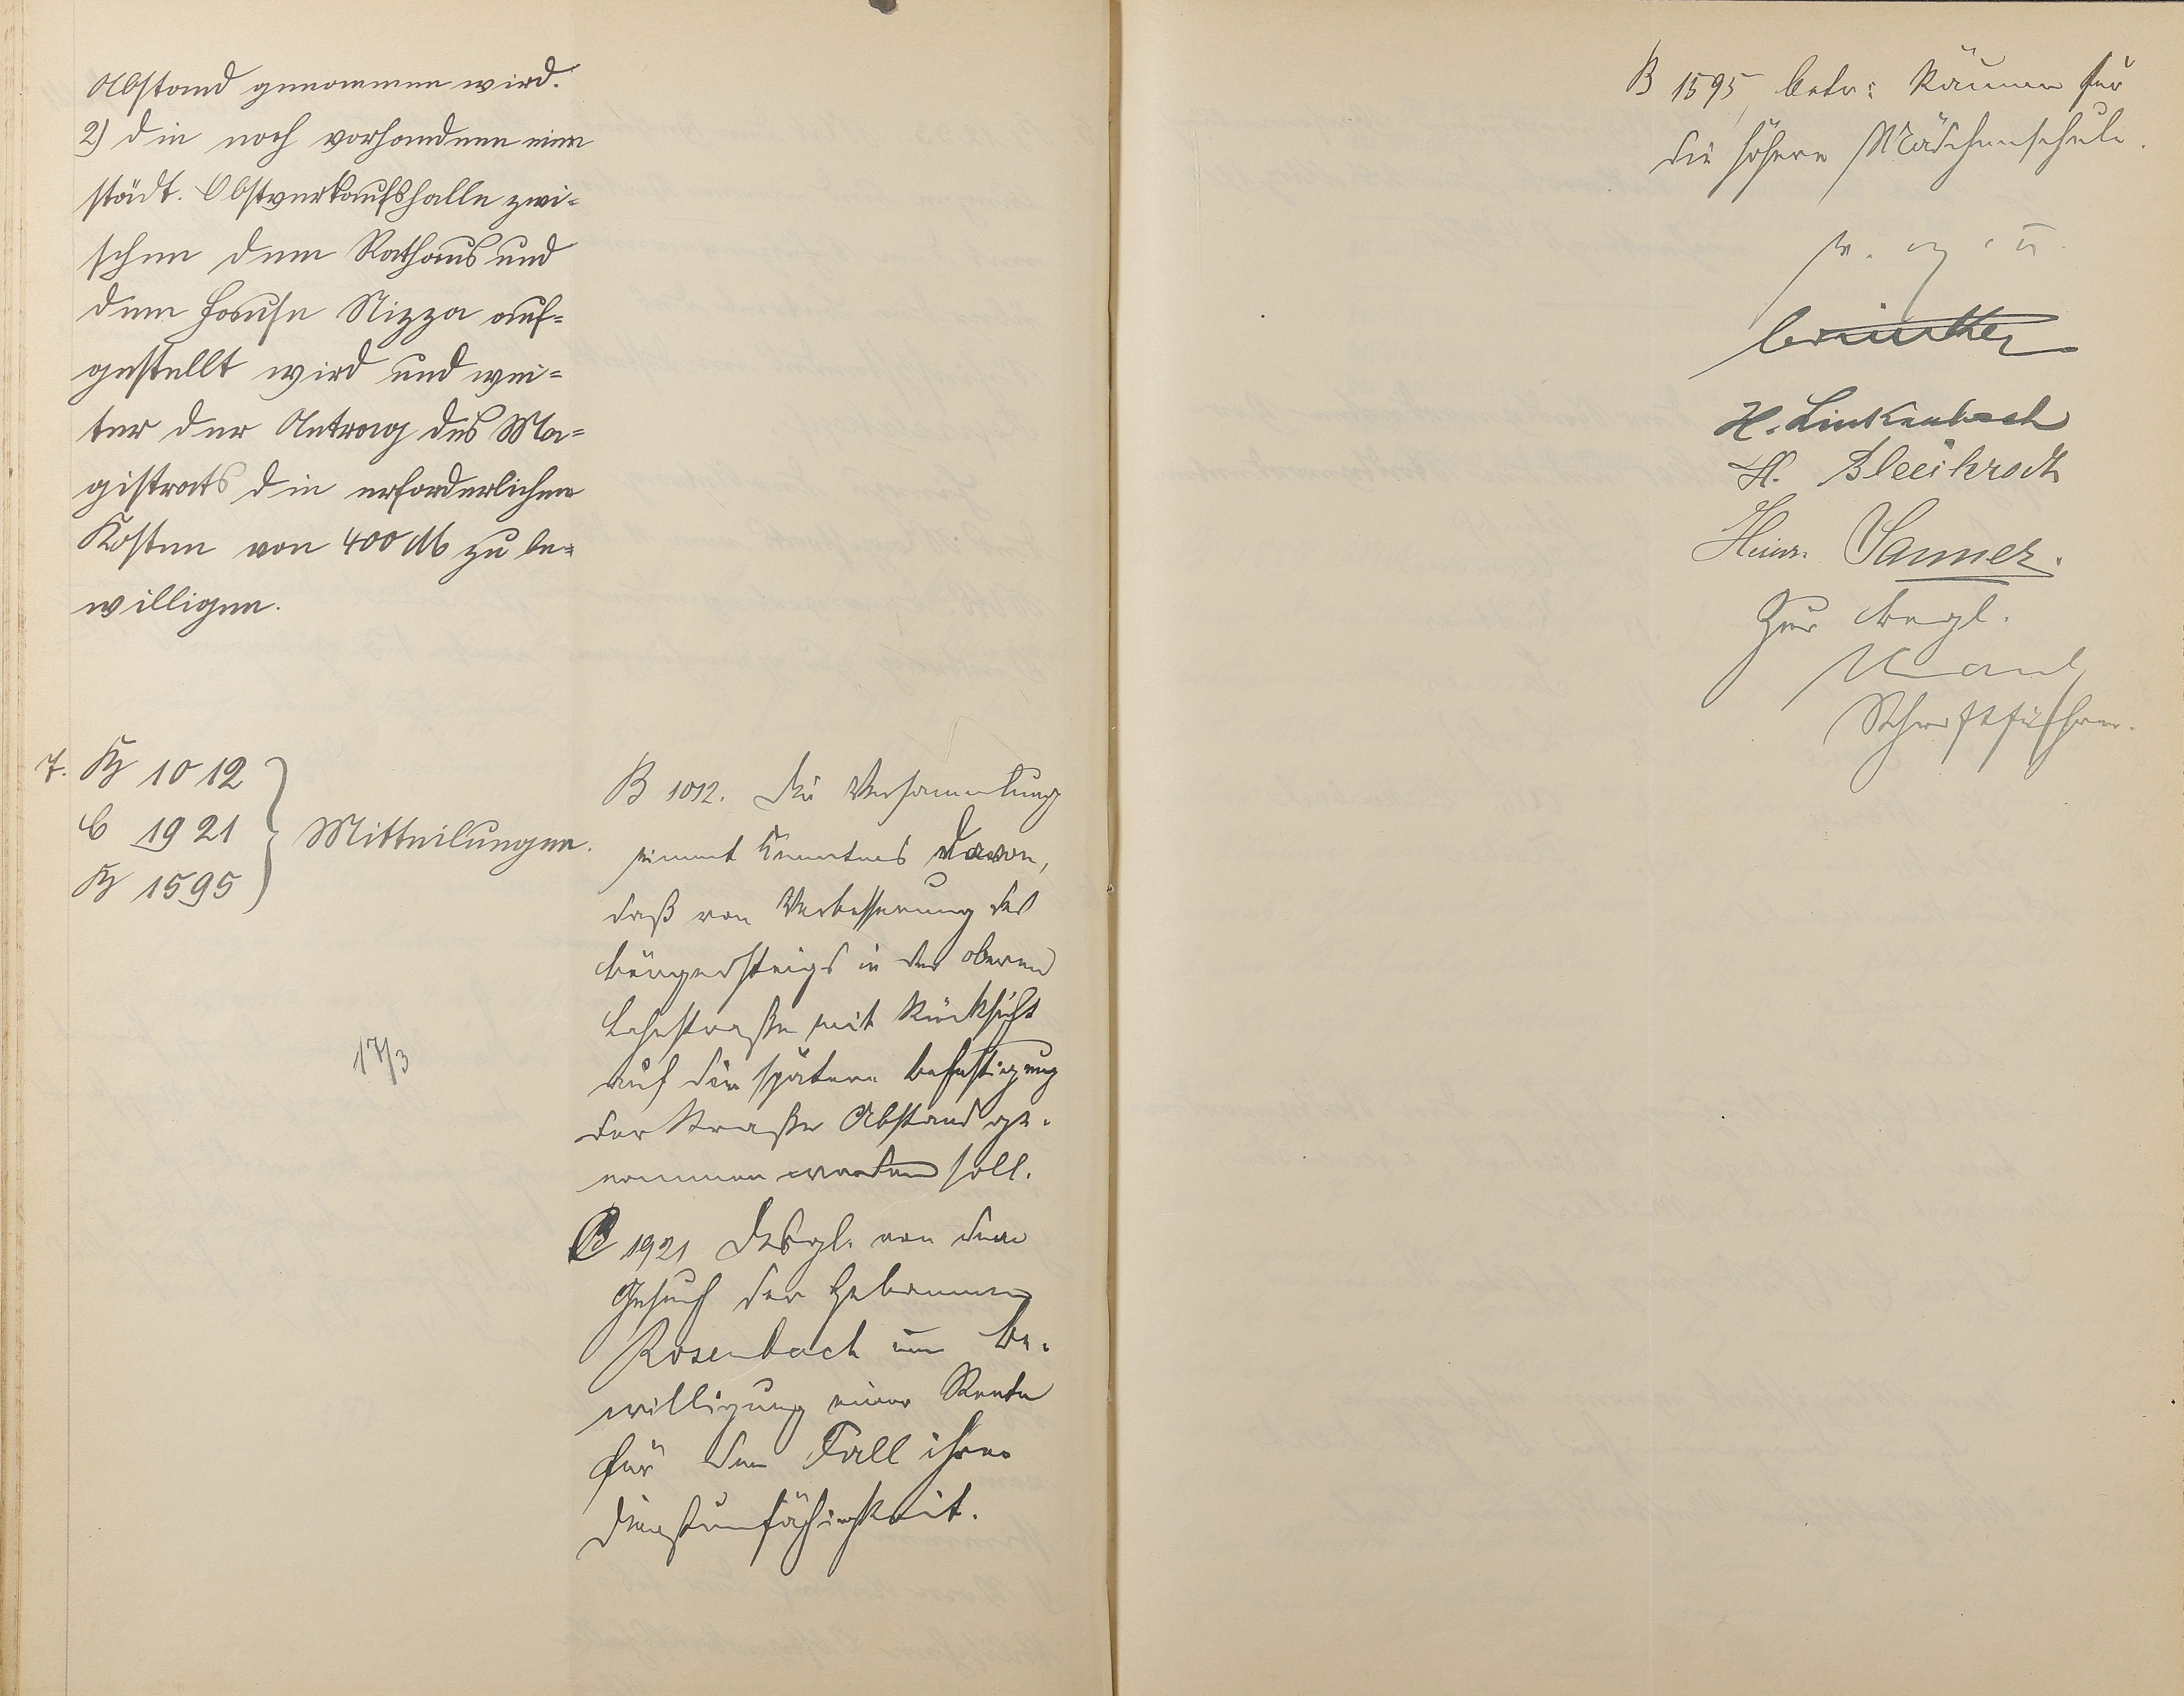 Abstand genommen wird.
2) die noch vorhandene eine
städt. Obstverkaufshalle zwi=
schen dem Rathaus und
dem Hause Nizza auf=
gestellt wird und wei=
ter der Antrag des Ma=
gistrats die erforderlichen
Kosten von 400 M zu be=
willigen.
7. B 1012
C 1921
B 1595
Mitteilungen.
17/3
B 1012. Die Versammlung
nimmt Kenntnis davon,
daß von Verbesserung des
Bürgersteigs in der oberen
Lahnstraße mit Rücksicht
auf die spätere Befestigung
der Straße Abstand ge-
nommen werden soll.
1921 Desgl. von dem
Gesuch der Hebamme
Rosenbach um Be-
willigung einer Rente
für den Fall ihrer
Dienstunfähigkeit.
B 1595 betr: Räume für
die höhere Mädchenschule.
v. g. u.
H. Linkenbach
H. Bleichrodt
Heinr. Sanner.
Zur Begl.
Schriftführer.